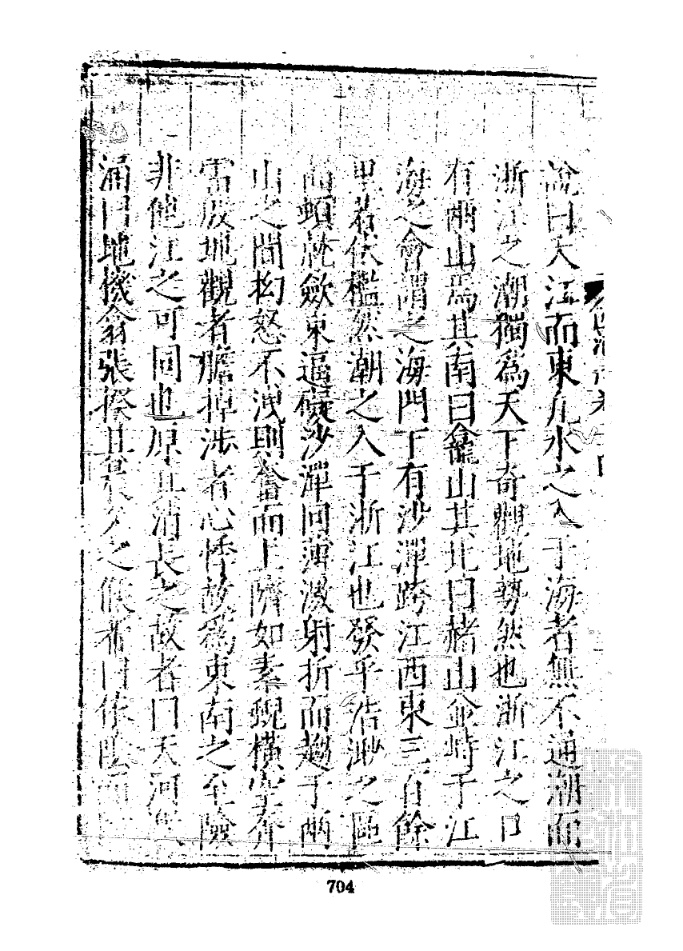 說曰大江而東凡水之入于海者無不通潮而
浙江之潮獨為天下奇觀地勢然也浙江之口
有兩山焉其南曰龕山其北曰赭山並峙于江
海之會謂之海門下有沙潬跨江西東三百餘
里若伏檻然潮之入于浙江也發乎浩渺之區
而頓就斂束逼礙沙潬回薄激射折而趨于兩
山之間拗怒不洩則奮而上隮如素蜺橫空奔
雷殷地觀者膽掉涉者心悸故為東南之至險
非他江之可同也原其消長之故者曰天河
涌曰地機翕張揆其之候者曰依陰而
704